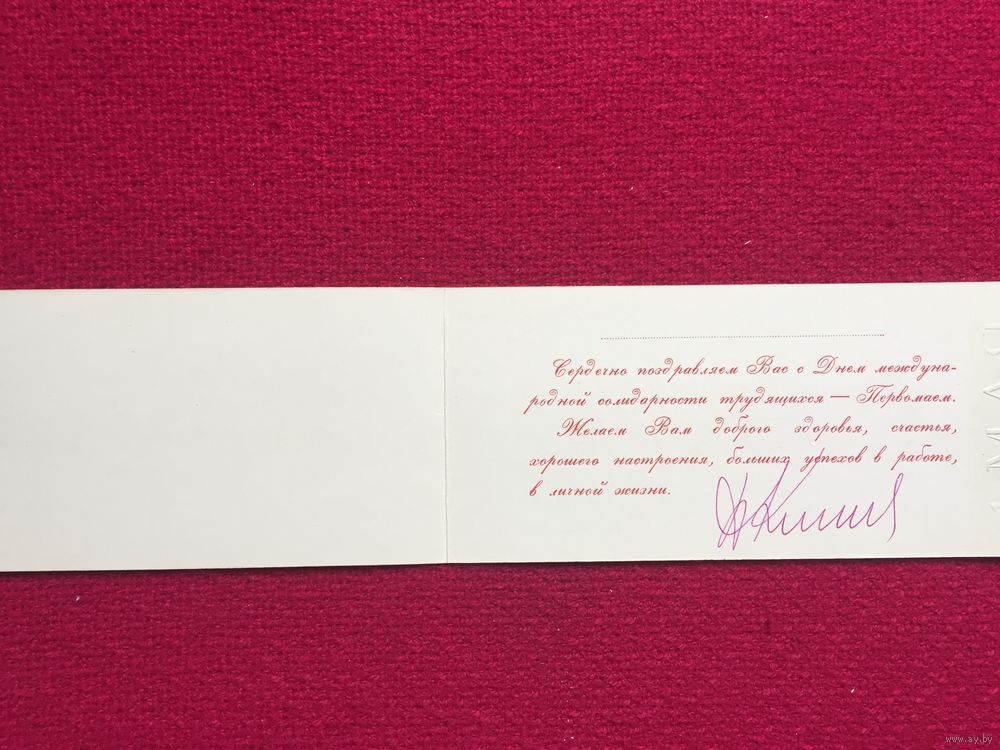 Сердечно поздравляем Вас с Днем междуна-
родной солидарности трудящихся — Первомаем.
Желаем Вам доброго здоровья, счастья,
хорошего настроения, больших успехов в работе,
в личной жизни.
1 МАЯ
www.ay.by